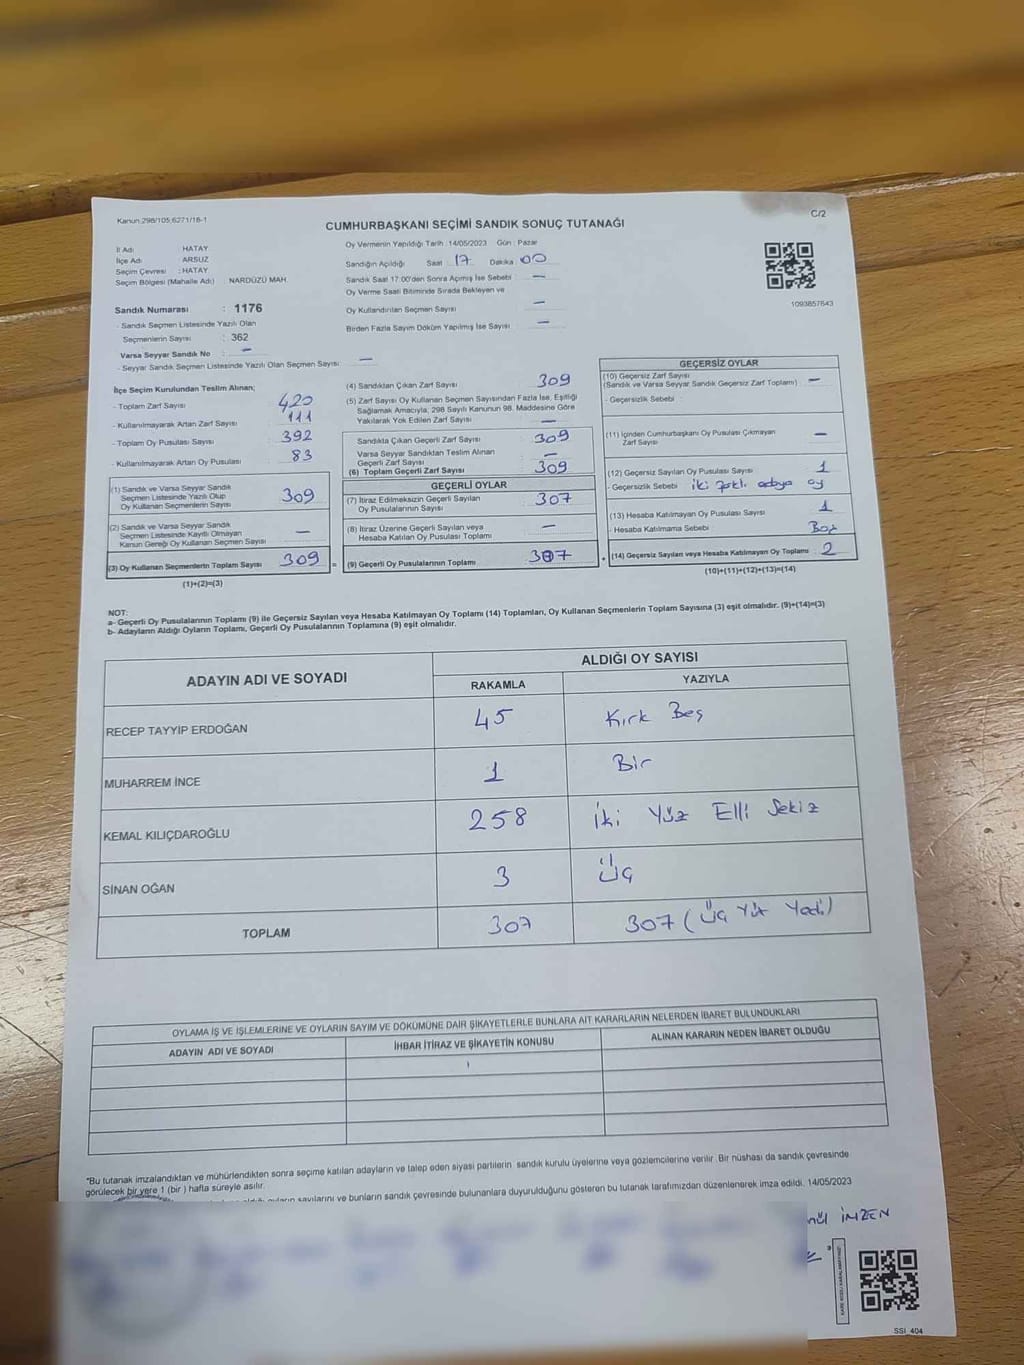 Kanun:298/105;6271/18-1
C/2
CUMHURBAŞKANI SEÇİMİ SANDIK SONUÇ TUTANAĞI
İl Adı HATAY
İlçe Adı ARSUZ
Seçim Çevresi : HATAY
Seçim Bölgesi (Mahalle Adı) NARDÜZÜ MAH.
Sandık Numarası : 1176
- Sandık Seçmen Listesinde Yazılı Olan
Seçmenlerin Sayısı : 362
Varsa Seyyar Sandık No : —
- Seyyar Sandık Seçmen Listesinde Yazılı Olan Seçmen Sayısı: —
Oy Vermenin Yapıldığı Tarih : 14/05/2023 Gün : Pazar
Sandığın Açıldığı Saat 17 Dakika 00
Sandık Saat 17:00'den Sonra Açılmış İse Sebebi : —
Oy Verme Saati Bitiminde Sırada Bekleyen ve
Oy Kullandırılan Seçmen Sayısı —
Birden Fazla Sayım Döküm Yapılmış İse Sayısı —
1093857643
İlçe Seçim Kurulundan Teslim Alınan;
- Toplam Zarf Sayısı : 420
- Kullanılmayarak Artan Zarf Sayısı : 111
- Toplam Oy Pusulası Sayısı : 392
- Kullanılmayarak Artan Oy Pusulası : 83
(1) Sandık ve Varsa Seyyar Sandık
Seçmen Listesinde Yazılı Olup
Oy Kullanan Seçmenlerin Sayısı : 309
(2) Sandık ve Varsa Seyyar Sandık
Seçmen Listesinde Kayıtlı Olmayan
Kanun Gereği Oy Kullanan Seçmen Sayısı : —
(3) Oy Kullanan Seçmenlerin Toplam Sayısı : 309 =
(1)+(2)=(3)
(4) Sandıktan Çıkan Zarf Sayısı 309
(5) Zarf Sayısı Oy Kullanan Seçmen Sayısından Fazla İse, Eşitliği
Sağlamak Amacıyla, 298 Sayılı Kanunun 98. Maddesine Göre
Yakılarak Yok Edilen Zarf Sayısı : —
Sandıkta Çıkan Geçerli Zarf Sayısı 309
Varsa Seyyar Sandıktan Teslim Alınan
Geçerli Zarf Sayısı —
(6) Toplam Geçerli Zarf Sayısı 309
GEÇERLİ OYLAR
(7) İtiraz Edilmeksizin Geçerli Sayılan
Oy Pusulalarının Sayısı : 307
(8) İtiraz Üzerine Geçerli Sayılan veya
Hesaba Katılan Oy Pusulası Toplamı : —
(9) Geçerli Oy Pusulalarının Toplamı : 307 +
GEÇERSİZ OYLAR
(10) Geçersiz Zarf Sayısı
(Sandık ve Varsa Seyyar Sandık Geçersiz Zarf Toplamı) : —
- Geçersizlik Sebebi :
(11) İçinden Cumhurbaşkanı Oy Pusulası Çıkmayan
Zarf Sayısı : —
(12) Geçersiz Sayılan Oy Pusulası Sayısı : 1
- Geçersizlik Sebebi : iki farklı adaya oy
(13) Hesaba Katılmayan Oy Pusulası Sayısı : 1
- Hesaba Katılmama Sebebi : Boş
(14) Geçersiz Sayılan veya Hesaba Katılmayan Oy Toplamı : 2
(10)+(11)+(12)+(13)=(14)
NOT:
a- Geçerli Oy Pusulalarının Toplamı (9) ile Geçersiz Sayılan veya Hesaba Katılmayan Oy Toplamı (14) Toplamları, Oy Kullanan Seçmenlerin Toplam Sayısına (3) eşit olmalıdır. (9)+(14)=(3)
b- Adayların Aldığı Oyların Toplamı, Geçerli Oy Pusulalarının Toplamına (9) eşit olmalıdır.
ADAYIN ADI VE SOYADI
ALDIĞI OY SAYISI
RAKAMLA YAZIYLA
RECEP TAYYİP ERDOĞAN 45 Kırk Beş
MUHARREM İNCE 1 Bir
KEMAL KILIÇDAROĞLU 258 İki Yüz Elli Sekiz
SİNAN OĞAN 3 Üç
TOPLAM 307 307 (Üç Yüz Yedi)
OYLAMA İŞ VE İŞLEMLERİNE VE OYLARIN SAYIM VE DÖKÜMÜNE DAİR ŞİKAYETLERLE BUNLARA AİT KARARLARIN NELERDEN İBARET BULUNDUKLARI
ADAYIN ADI VE SOYADI İHBAR İTİRAZ VE ŞİKAYETİN KONUSU ALINAN KARARIN NEDEN İBARET OLDUĞU
*Bu tutanak imzalandıktan ve mühürlendikten sonra seçime katılan adayların ve talep eden siyasi partilerin sandık kurulu üyelerine veya gözlemcilerine verilir. Bir nüshası da sandık çevresinde
görülecek bir yere 1 (bir) hafta süreyle asılır.
sayılarını ve bunların sandık çevresinde bulunanlara duyurulduğunu gösteren bu tutanak tarafımızdan düzenlenerek imza edildi. 14/05/2023
İMZEN
SSI_404